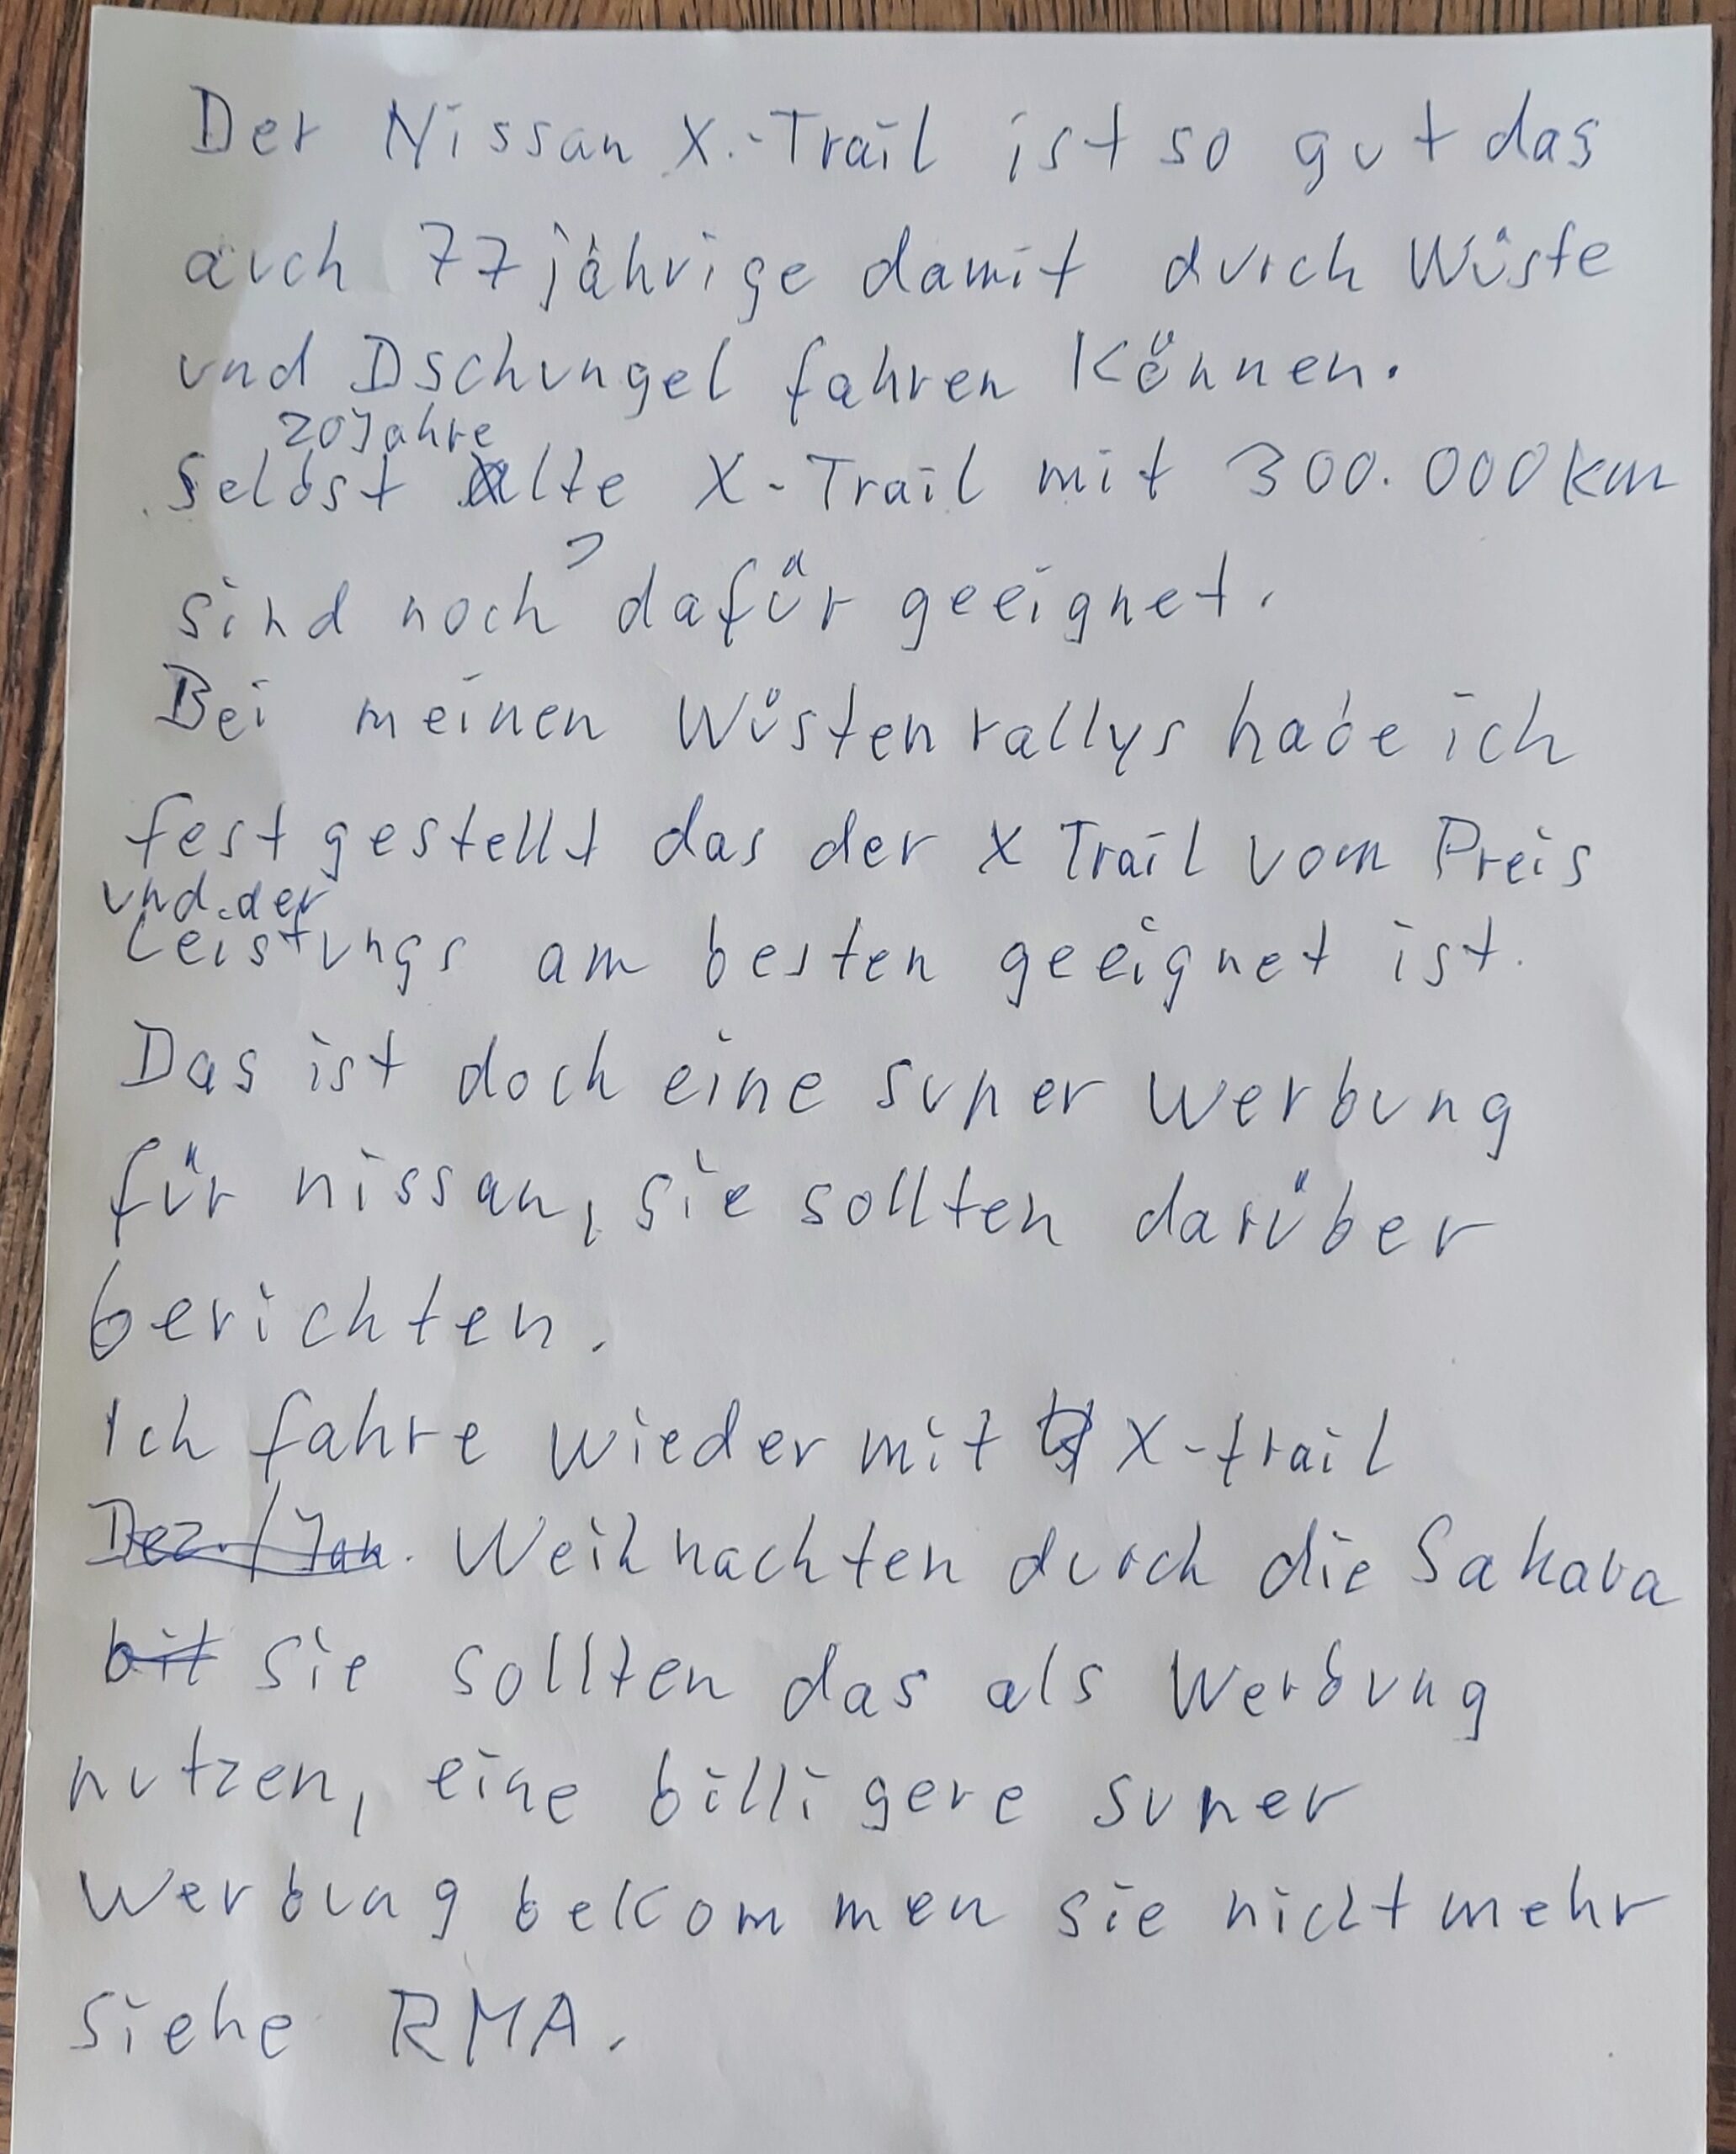 Der Nissan X.-Trail ist so gut das
auch 77jährige damit durch Wüste
und Dschungel fahren Können.
20 Jahre
selbst alte X-Trail mit 300.000 km
sind noch dafür geeignet.
Bei meinen Wüstenrallys habe ich
festgestellt das der X Trail vom Preis
und der
Leistungs am besten geeignet ist.
Das ist doch eine super Werbung
für nissan, sie sollten darüber
berichten.
Ich fahre wieder mit X-trail
Dez. / Jan. Weihnachten durch die Sahara
bit sie sollten das als Werbung
nutzen, eine billigere super
Werbung bekommen sie nicht mehr
siehe RMA.